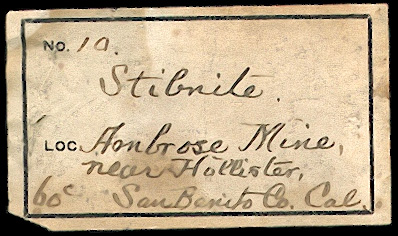 No. 10.
Stibnite.
Loc Ambrose Mine,
near Hollister,
60c San Benito Co. Cal.